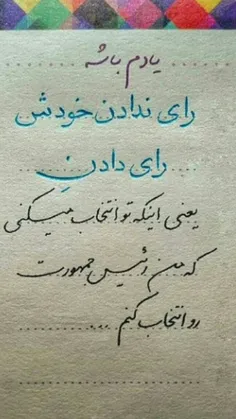 یادم باشه
رای ندادن خودش
رای دادنِ
یعنی اینکه تو انتخاب میکنی
که من رئیس جمهورت
رو انتخاب کنم ....